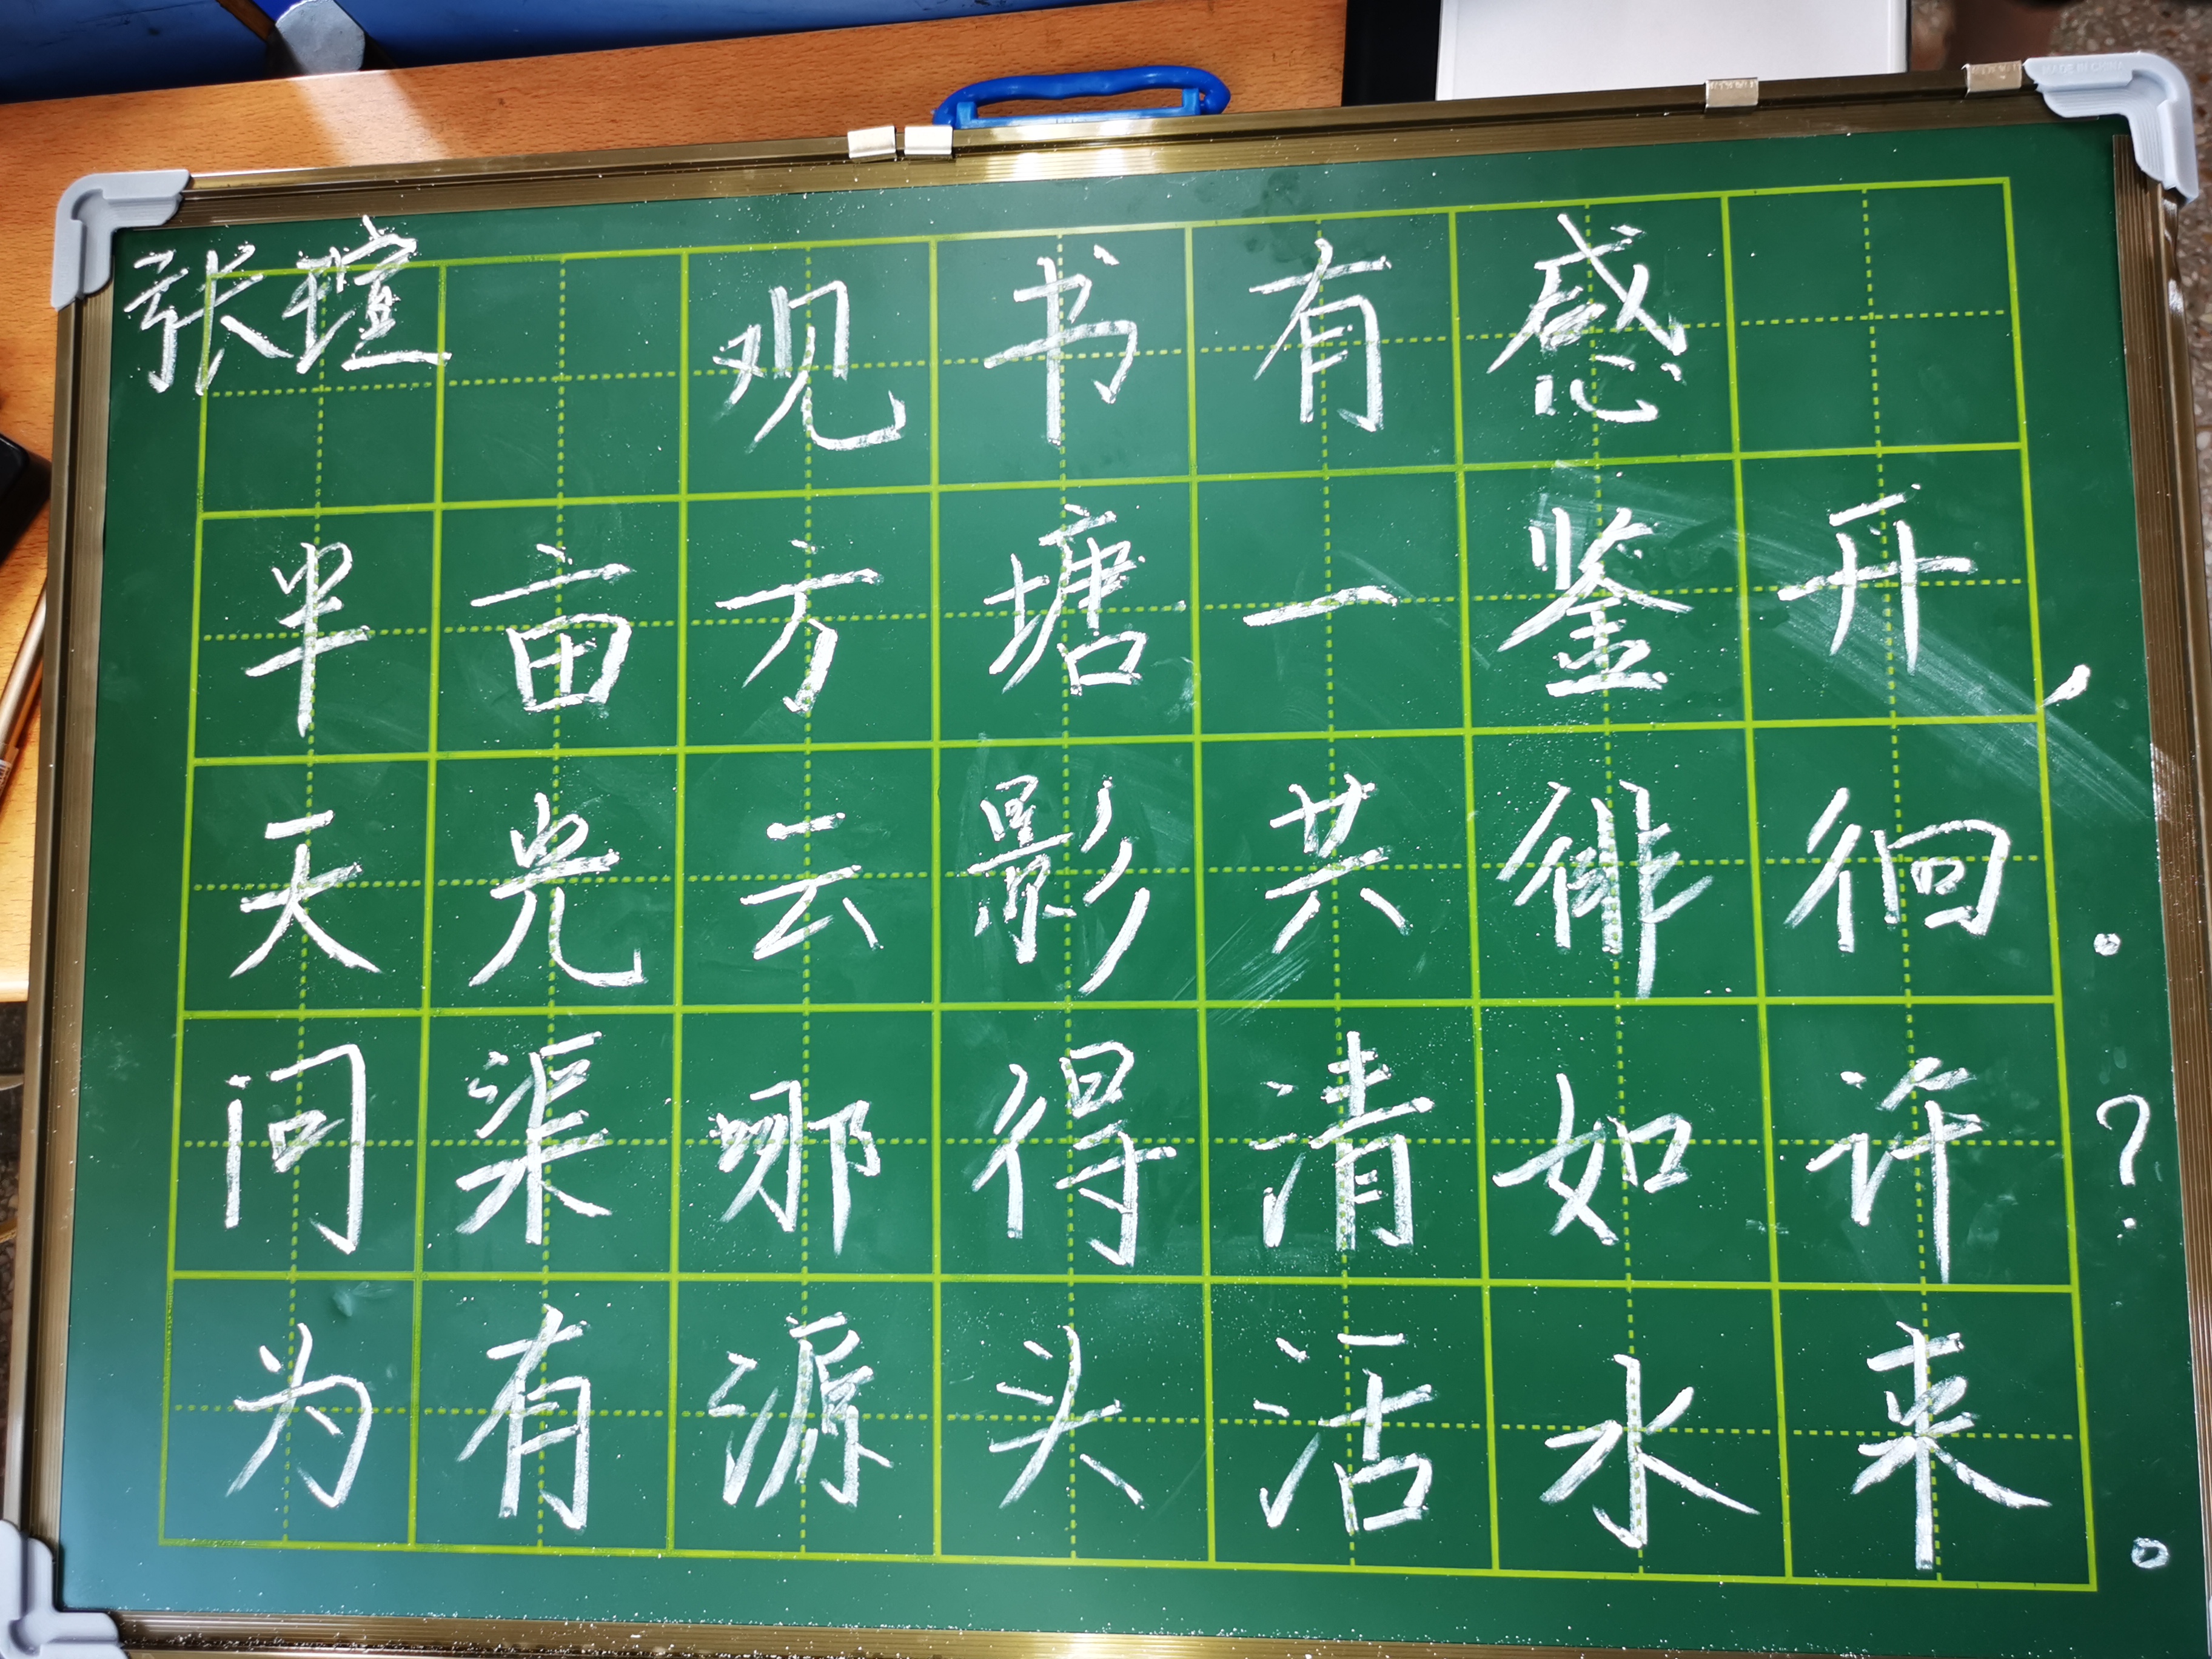 张瑄 观书有感
半亩方塘一鉴开，
天光云影共徘徊。
问渠哪得清如许？
为有源头活水来。